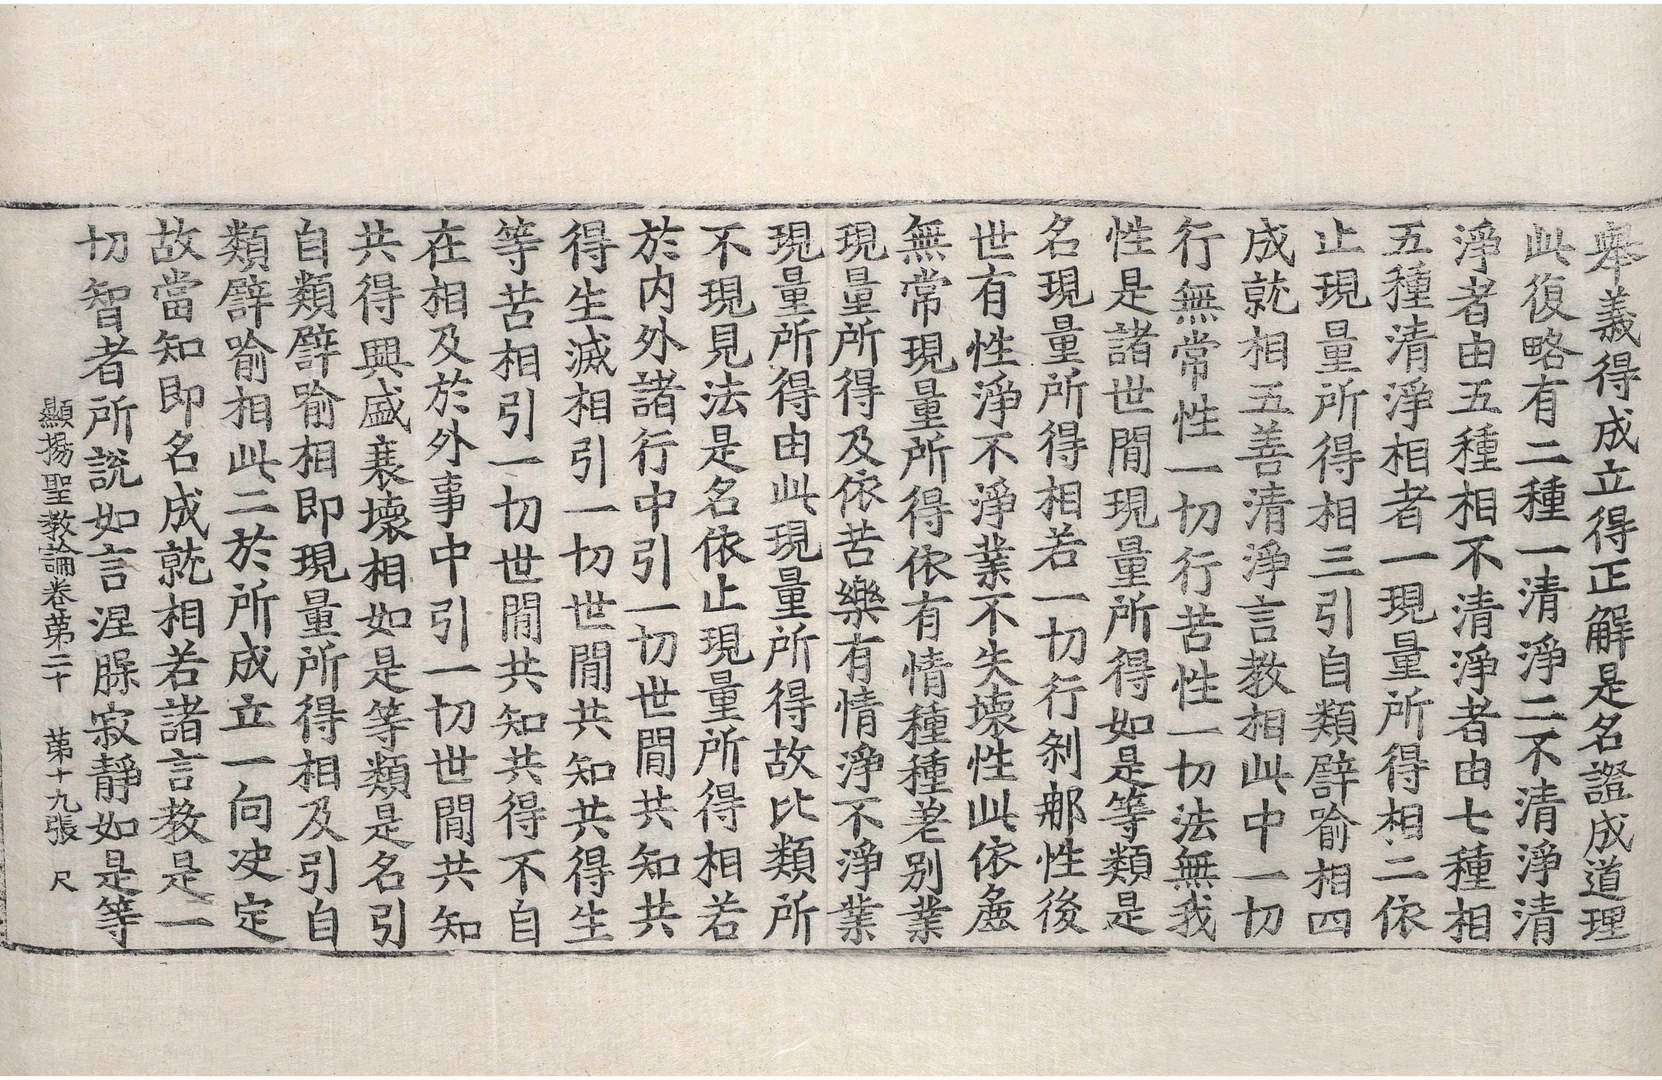 舉義得成立得正解是名證成道理
此復略有二種一清淨二不清淨清
淨者由五種相不清淨者由七種相
五種清淨相者一現量所得相二依
止現量所得相三引自類譬喻相四
成就相五善清淨言教相此中一切
行無常性一切行苦性一切法無我
性是諸世間現量所得如是等類是
名現量所得相若一切行剎那性後
世有性淨不淨業不失壞性此依麁
無常現量所得依有情種種差別業
現量所得及依苦樂有情淨不淨業
現量所得由此現量所得故比類所
不現見法是名依止現量所得相若
於內外諸行中引一切世間共知共
得生滅相引一切世間共知共得生
等苦相引一切世間共知共得不自
在相及於外事中引一切世間共知
共得興盛衰壞相如是等類是名引
自類譬喻相即現量所得相及引自
類譬喻相此二於所成立一向决定
故當知即名成就相若諸言教是一
切智者所說如言涅槃寂靜如是等
顯揚聖教論卷第二十 第十九張 尺